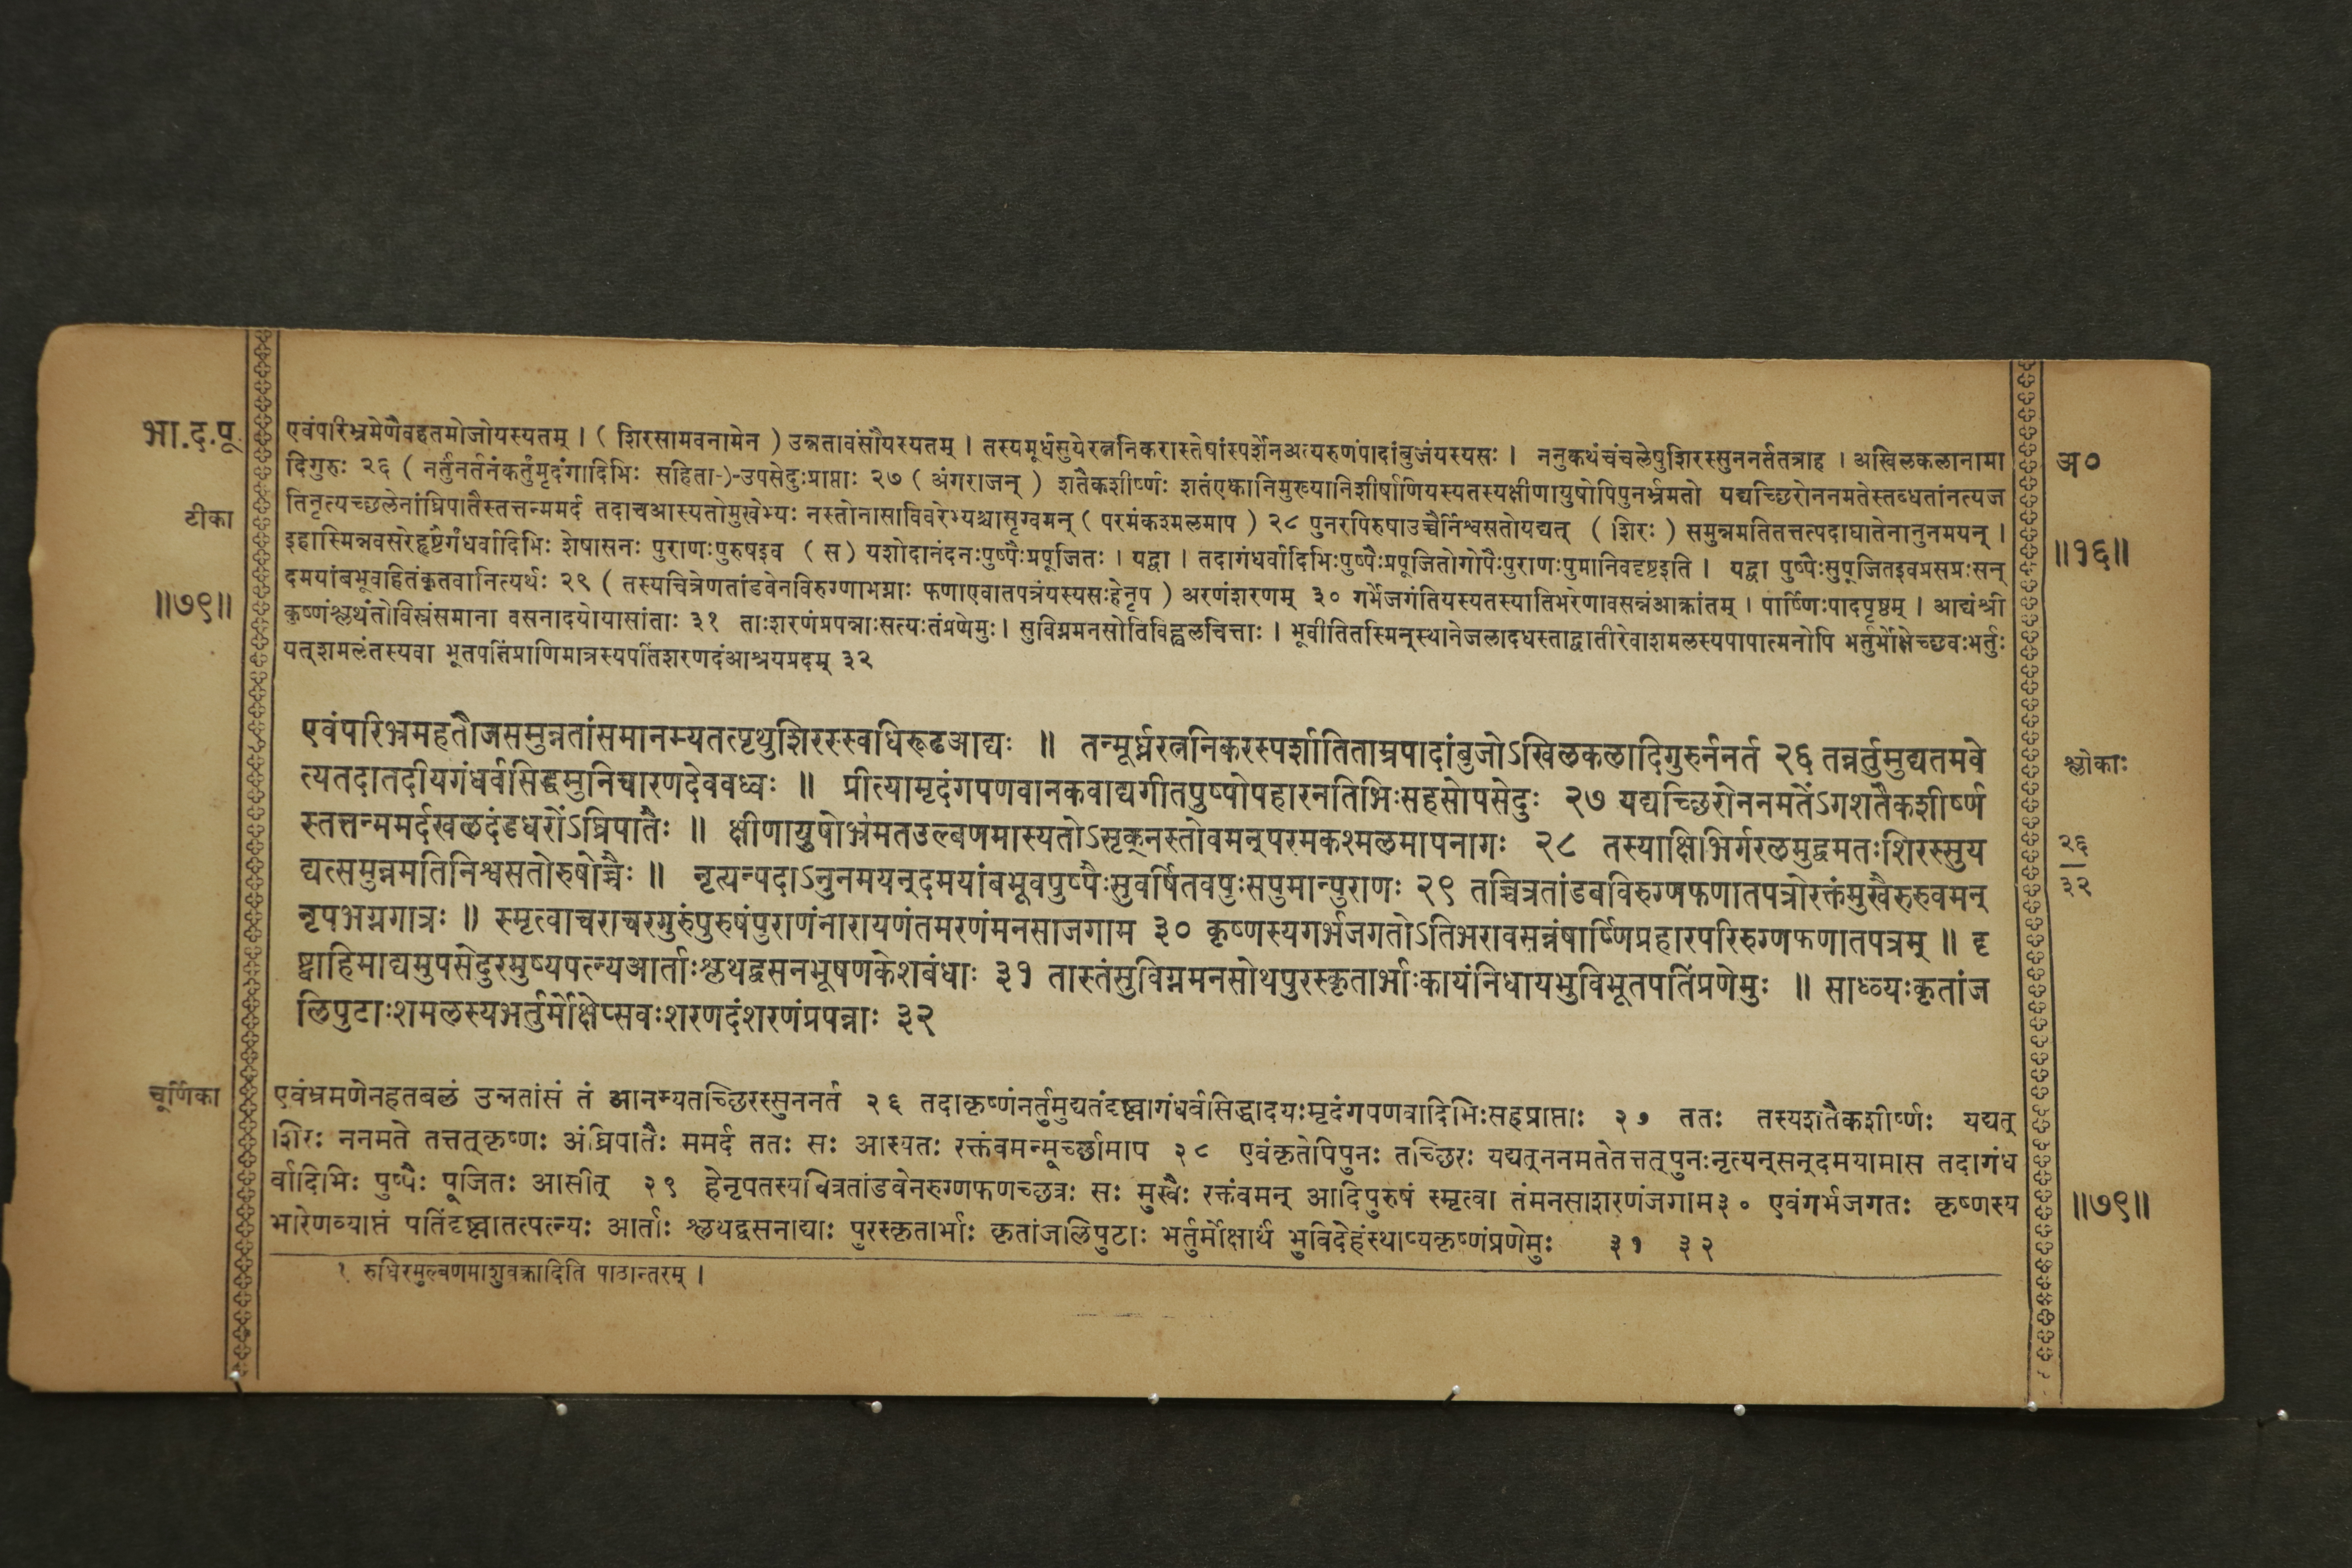 भा.द.पू.
एवंपरिभ्रमेणैवहतमोजोयस्यतम् । ( शिरसामवनामेन ) उन्नतावंसौयस्यतम् । तस्यमूर्धसुयेरत्ननिकरास्तेषांस्पर्शेनअत्यरुणंपादांबुजंयस्यसः । ननुकथंचंचलेषुशिरस्सुननर्ततत्राह । अखिलकलानामा
दिगुरुः २६ ( नर्तुंनर्तनंकर्तुंमृदंगादिभिः सहिता-)-उपसेदुःप्राप्ताः २७ ( अंगराजन् ) शतैकशीर्ष्णः शतंएकानिमुख्यानिशीर्षाणियस्यतस्यक्षीणायुषोपिपुनर्भ्रमतो यद्यच्छिरोननमतेस्तब्धतांनत्यज
अ०
टीका
तिनृत्यच्छलेनांघ्रिपातैस्तत्तन्ममर्द तदाचआस्यतोमुखेभ्यः नस्तोनासाविवरेभ्यश्चासृग्वमन् ( परमंकश्मलमाप ) २८ पुनरपिरुषाउच्चैर्निश्वसतोयद्यत् ( शिरः ) समुन्नमतितत्तत्पदाघातेनानुनमयन् ।
इहास्मिन्नवसरेहृष्टैर्गंधर्वादिभिः शेषासनः पुराणःपुरुषइव ( स ) यशोदानंदनःपुष्पैःप्रपूजितः । यद्वा । तदागंधर्वादिभिःपुष्पैःप्रपूजितोगोपैःपुराणःपुमानिवदृष्टइति । यद्वा पुष्पैःसुपूजितइवप्रसन्नःसन्
॥१६॥
॥७९॥
दमयांबभूवहितंकृतवानित्यर्थः २९ ( तस्यचित्रेणतांडवेनविरुग्णाभग्नाः फणाएवातपत्रंयस्यसःहेनृप ) अरणंशरणम् ३० गर्भेजगंतियस्यतस्यातिभरेणावसन्नंआक्रांतम् । पार्ष्णिःपादपृष्ठम् । आद्यंश्री
कृष्णंश्लथंतोविस्रंसमाना वसनादयोयासांताः ३१ ताःशरणंप्रपन्नाःसत्यःतंप्रणेमुः । सुविग्नमनसोतिविह्वलचित्ताः । भूवीतितस्मिन्स्थानेजलादधस्ताद्वातीरेवाशमलस्यपापात्मनोपि भर्तुर्मोक्षेच्छवःभर्तुः
यत्शमलंतस्यवा भूतपतिंप्राणिमात्रस्यपतिंशरणदंआश्रयप्रदम् ३२
एवंपरिभ्रमहतौजसमुन्नतांसमानम्यतत्पृथुशिरस्स्वधिरूढआद्यः ॥ तन्मूर्ध्नरत्ननिकरस्पर्शातिताम्रपादांबुजोऽखिलकलादिगुरुर्ननर्त २६ तन्नर्तुमुद्यतमवे
त्यतदातदीयगंधर्वसिद्धमुनिचारणदेववध्वः ॥ प्रीत्यामृदंगपणवानकवाद्यगीतपुष्पोपहारनतिभिःसहसोपसेदुः २७ यद्यच्छिरोननमतेंऽगशतैकशीर्ष्ण
श्लोकाः
स्तत्तन्ममर्दखलदंडधरोंऽघ्रिपातैः ॥ क्षीणायुषोभ्रंमतउल्बणमास्यतोऽसृक्नस्तोवमन्परमकश्मलमापनागः २८ तस्याक्षिभिर्गरलमुद्वमतःशिरस्सुय
द्यत्समुन्नमतिनिश्वसतोरुषोच्चैः ॥ नृत्यन्पदाऽनुनमयन्दमयांबभूवपुष्पैःसुवर्षितवपुःसपुमान्पुराणः २९ तच्चित्रतांडवविरुग्णफणातपत्रोरक्तंमुखैरुरुवमन्
२६
३२
नृपभग्नगात्रः ॥ स्मृत्वाचराचरगुरुंपुरुषंपुराणंनारायणंतमरणंमनसाजगाम ३० कृष्णस्यगर्भजगतोऽतिभरावसन्नंषार्ष्णिप्रहारपरिरुग्णफणातपत्रम् ॥ दृ
ष्ट्वाहिमाद्यमुपसेदुरमुष्यपत्न्यआर्ताःश्लथद्वसनभूषणकेशबंधाः ३१ तास्तंसुविग्नमनसोथपुरस्कृतार्भाःकायंनिधायभुविभूतपतिंप्रणेमुः ॥ साध्व्यःकृतांज
लिपुटाःशमलस्यभर्तुर्मोक्षेप्सवःशरणदंशरणंप्रपन्नाः ३२
चूर्णिका
एवंभ्रमणेनहतबलं उन्नतांसं तं आनम्यतच्छिरस्सुननर्त २६ तदाकृष्णंनर्तुमुद्यतंदृष्ट्वागंधर्वसिद्धादयःमृदंगपणवादिभिःसहप्राप्ताः २७ ततः तस्यशतैकशीर्ष्णः यद्यत्
शिरः ननमते तत्तत्कृष्णः अंघ्रिपातैः ममर्द ततः सः आस्यतः रक्तंवमन्मूर्च्छामाप २८ एवंकृतेपिपुनः तच्छिरः यद्यत्ननमतेतत्तत्पुनःनृत्यन्सन्दमयामास तदागंध
र्वादिभिः पुष्पैः पूजितः आसीत् २९ हेनृपतस्यचित्रतांडवेनरुग्णफणच्छत्रः सः मुखैः रक्तंवमन् आदिपुरुषं स्मृत्वा तंमनसाशरणंजगाम३० एवंगर्भजगतः कृष्णस्य
॥७९॥
भारेणव्याप्तं पतिंदृष्ट्वातत्पत्न्यः आर्ताः श्लथद्वसनाद्याः पुरस्कृतार्भाः कृतांजलिपुटाः भर्तुर्मोक्षार्थं भुविदेहंस्थाप्यकृष्णंप्रणेमुः ३१ ३२
१ रुधिरमुल्बणमाशुवक्रादिति पाठान्तरम् ।